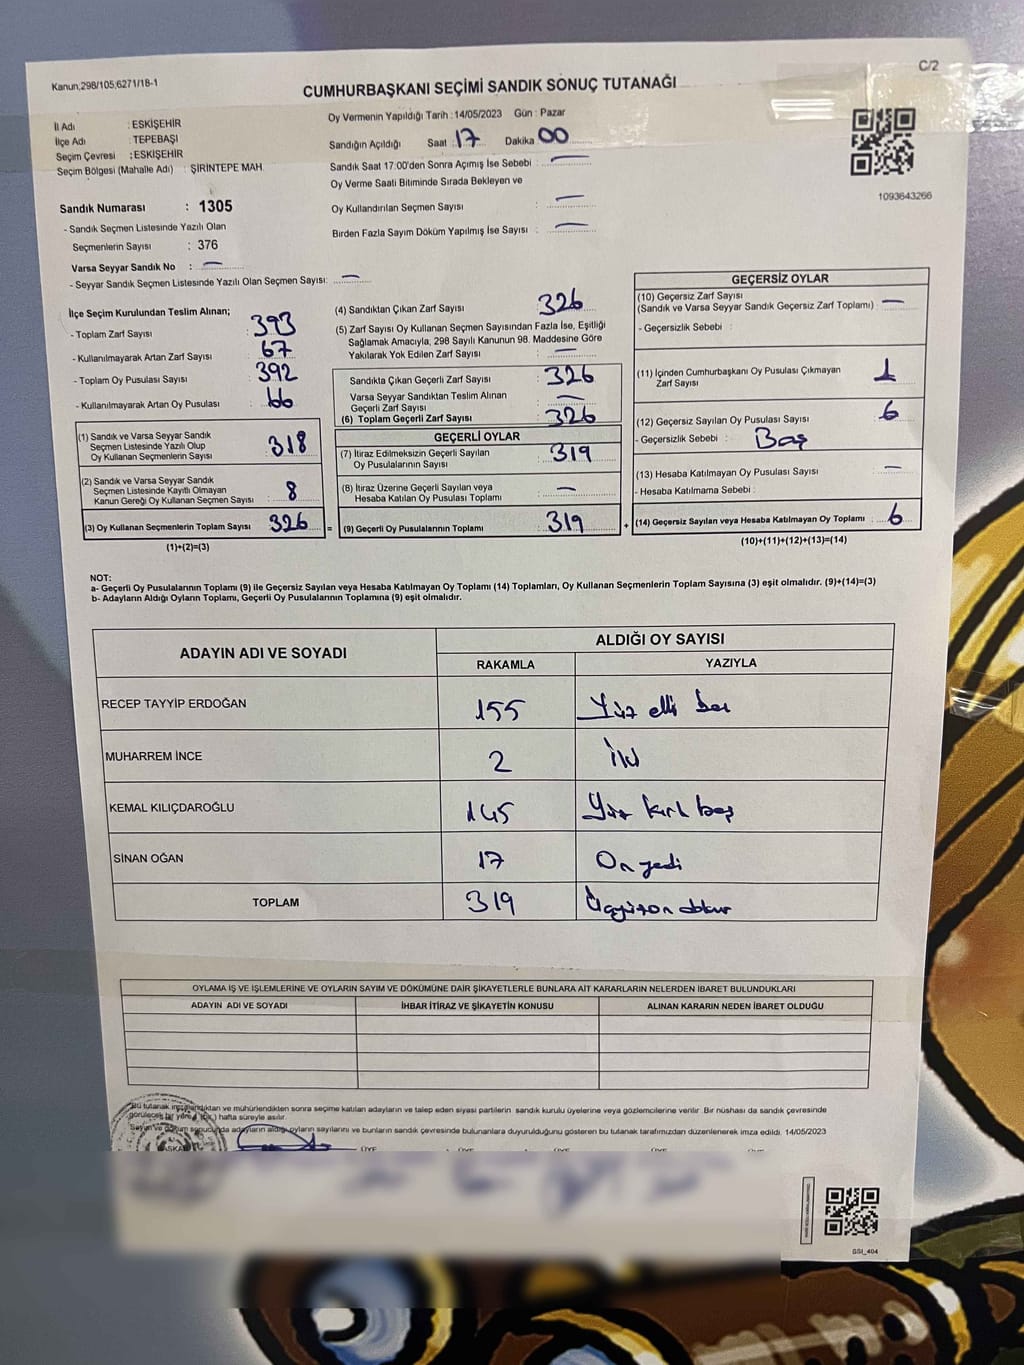 Kanun,298/105,6271/18-1
C/2
CUMHURBAŞKANI SEÇİMİ SANDIK SONUÇ TUTANAĞI
İl Adı : ESKİŞEHİR
İlçe Adı : TEPEBAŞI
Seçim Çevresi : ESKİŞEHİR
Seçim Bölgesi (Mahalle Adı) : ŞİRİNTEPE MAH
Sandık Numarası : 1305
- Sandık Seçmen Listesinde Yazılı Olan
Seçmenlerin Sayısı : 376
Varsa Seyyar Sandık No : —
- Seyyar Sandık Seçmen Listesinde Yazılı Olan Seçmen Sayısı: —
Oy Vermenin Yapıldığı Tarih : 14/05/2023 Gün : Pazar
Sandığın Açıldığı Saat 17 Dakika 00
Sandık Saat 17:00'den Sonra Açımış İse Sebebi : —
Oy Verme Saati Bitiminde Sırada Bekleyen ve
Oy Kullandırılan Seçmen Sayısı : —
Birden Fazla Sayım Döküm Yapılmış İse Sayısı : —
1093643266
İlçe Seçim Kurulundan Teslim Alınan;
- Toplam Zarf Sayısı : 393
- Kullanılmayarak Artan Zarf Sayısı : 67
- Toplam Oy Pusulası Sayısı : 392
- Kullanılmayarak Artan Oy Pusulası : 66
(1) Sandık ve Varsa Seyyar Sandık
Seçmen Listesinde Yazılı Olup
Oy Kullanan Seçmenlerin Sayısı : 318
(2) Sandık ve Varsa Seyyar Sandık
Seçmen Listesinde Kayıtlı Olmayan
Kanun Gereği Oy Kullanan Seçmen Sayısı : 8
(3) Oy Kullanan Seçmenlerin Toplam Sayısı : 326 =
(1)+(2)=(3)
(4) Sandıktan Çıkan Zarf Sayısı : 326
(5) Zarf Sayısı Oy Kullanan Seçmen Sayısından Fazla İse, Eşitliği
Sağlamak Amacıyla, 298 Sayılı Kanunun 98. Maddesine Göre
Yakılarak Yok Edilen Zarf Sayısı : —
Sandıkta Çıkan Geçerli Zarf Sayısı : 326
Varsa Seyyar Sandıktan Teslim Alınan
Geçerli Zarf Sayısı : —
(6) Toplam Geçerli Zarf Sayısı : 326
GEÇERLİ OYLAR
(7) İtiraz Edilmeksizin Geçerli Sayılan
Oy Pusulalarının Sayısı : 319
(8) İtiraz Üzerine Geçerli Sayılan veya
Hesaba Katılan Oy Pusulası Toplamı : —
(9) Geçerli Oy Pusulalarının Toplamı : 319 +
GEÇERSİZ OYLAR
(10) Geçersiz Zarf Sayısı
(Sandık ve Varsa Seyyar Sandık Geçersiz Zarf Toplamı) : —
- Geçersizlik Sebebi :
(11) İçinden Cumhurbaşkanı Oy Pusulası Çıkmayan
Zarf Sayısı : 1
(12) Geçersiz Sayılan Oy Pusulası Sayısı : 6
- Geçersizlik Sebebi : Boş
(13) Hesaba Katılmayan Oy Pusulası Sayısı : —
- Hesaba Katılmama Sebebi :
(14) Geçersiz Sayılan veya Hesaba Katılmayan Oy Toplamı : 6
(10)+(11)+(12)+(13)=(14)
NOT:
a- Geçerli Oy Pusulalarının Toplamı (9) ile Geçersiz Sayılan veya Hesaba Katılmayan Oy Toplamı (14) Toplamları, Oy Kullanan Seçmenlerin Toplam Sayısına (3) eşit olmalıdır. (9)+(14)=(3)
b- Adayların Aldığı Oyların Toplamı, Geçerli Oy Pusulalarının Toplamına (9) eşit olmalıdır.
ADAYIN ADI VE SOYADI
ALDIĞI OY SAYISI
RAKAMLA YAZIYLA
RECEP TAYYİP ERDOĞAN 155 Yüz elli beş
MUHARREM İNCE 2 İki
KEMAL KILIÇDAROĞLU 145 Yüz kırk beş
SİNAN OĞAN 17 On yedi
TOPLAM 319 Üçyüzon dokuz
OYLAMA İŞ VE İŞLEMLERİNE VE OYLARIN SAYIM VE DÖKÜMÜNE DAİR ŞİKAYETLERLE BUNLARA AİT KARARLARIN NELERDEN İBARET BULUNDUKLARI
ADAYIN ADI VE SOYADI İHBAR İTİRAZ VE ŞİKAYETİN KONUSU ALINAN KARARIN NEDEN İBARET OLDUĞU
Bu tutanak imzalandıktan ve mühürlendikten sonra seçime katılan adayların ve talep eden siyasi partilerin sandık kurulu üyelerine veya gözlemcilerine verilir. Bir nüshası da sandık çevresinde
görülecek bir yere 1 (bir) hafta süreyle asılır.
Sayım ve döküm sonucunda adayların aldığı oyların sayılarını ve bunların sandık çevresinde bulunanlara duyurulduğunu gösteren bu tutanak tarafımızdan düzenlenerek imza edildi. 14/05/2023
GSI_404